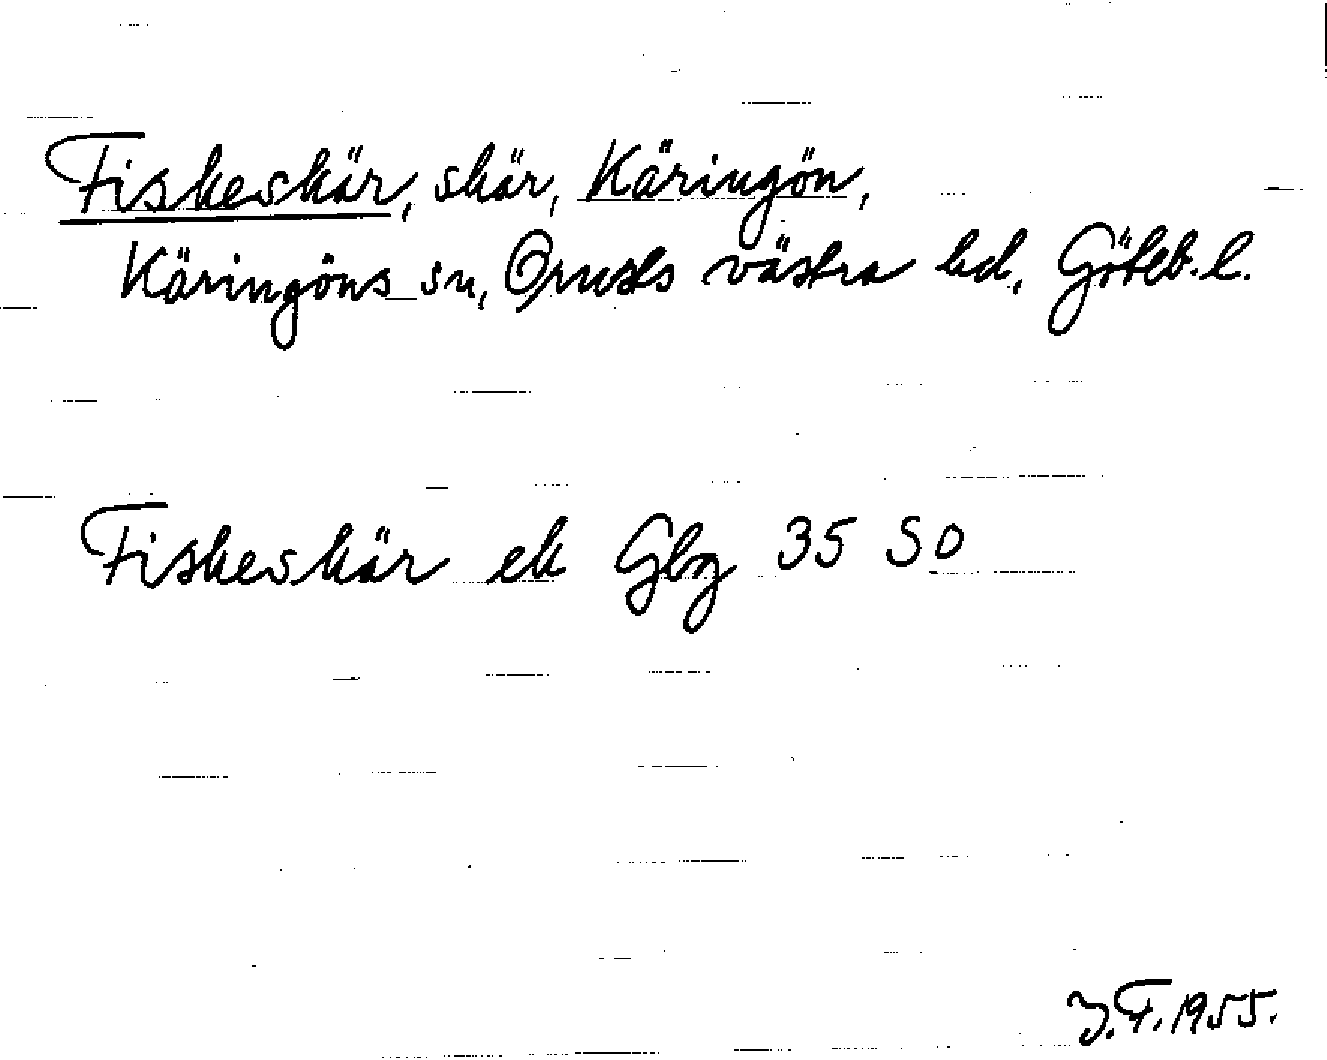 Fiskeskär, skär, Käringön,
Käringöns sn, Orusts västra hd, Göteb. l.
Fiskeskär ek Gbg 35 SO
J.F. 1955.